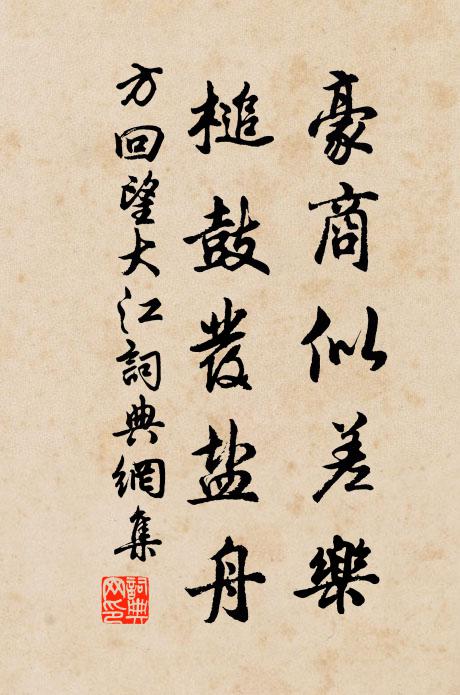 豪商似差樂
槌鼓發盐舟
方回望大江詞典網集
詞典網印